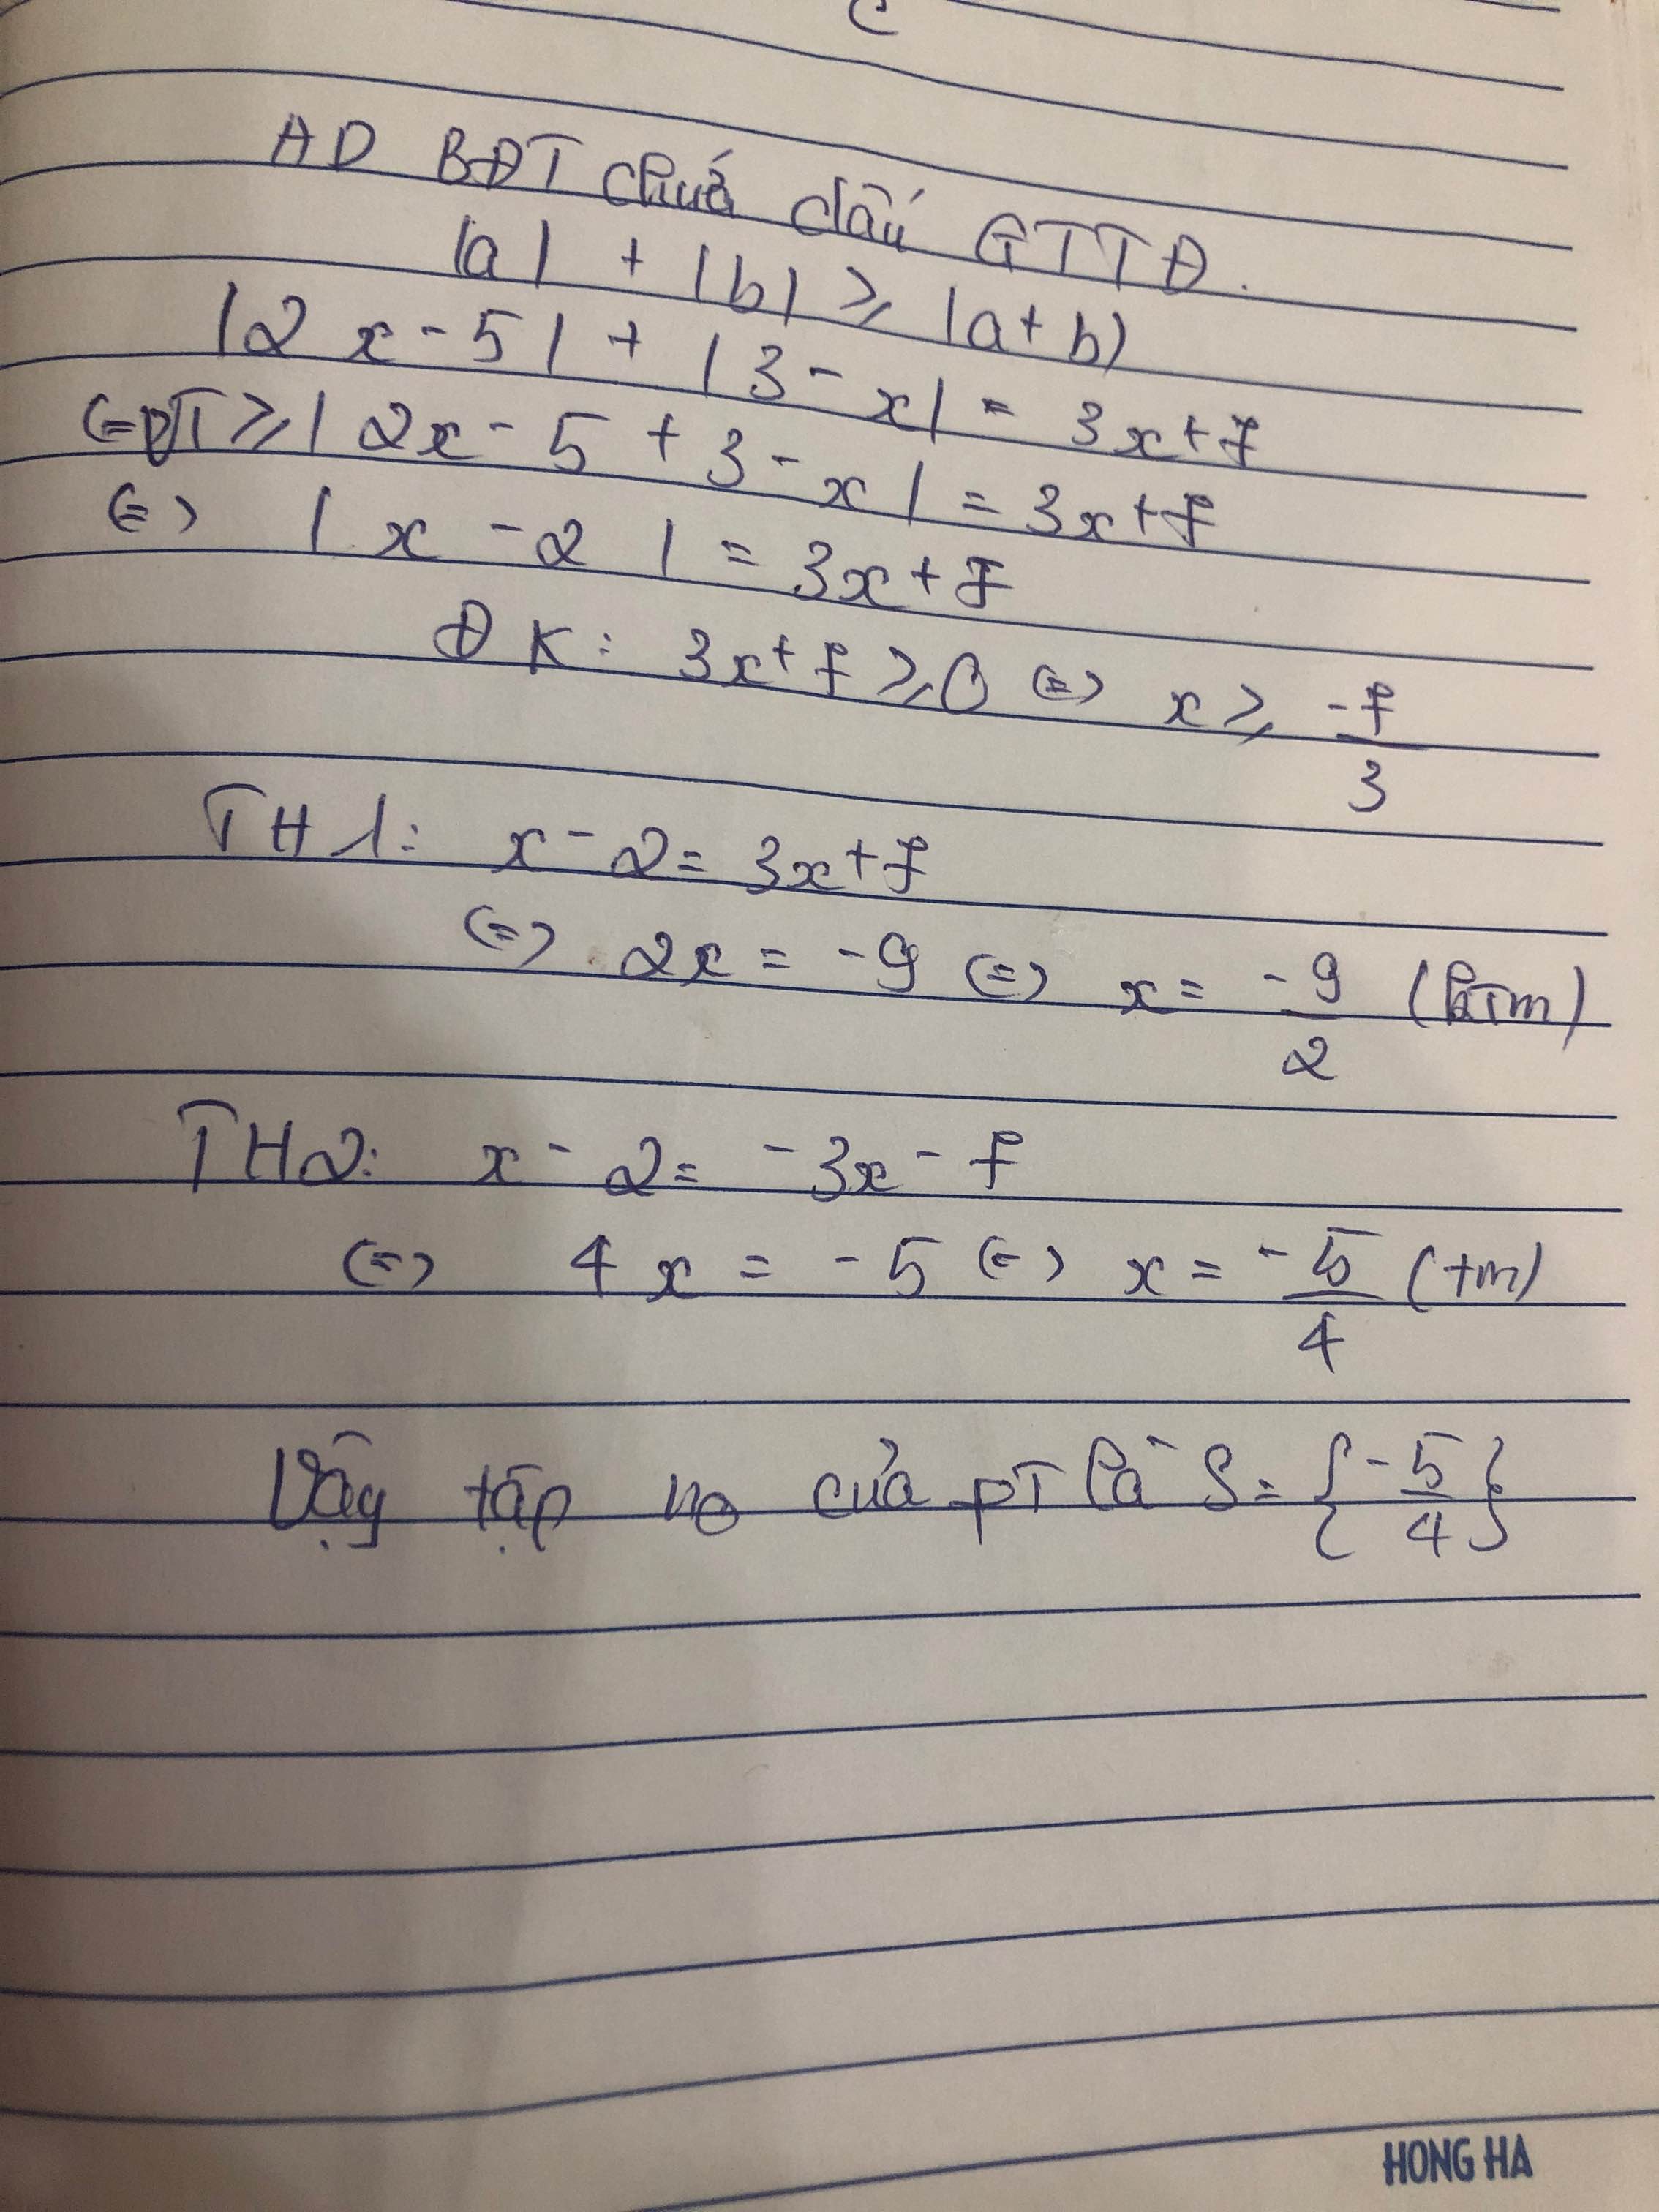 AD BĐT chứa dấu GTTĐ.
|a| + |b| ≥ |a+b|
|2x-5| + |3-x| = 3x+7
(=) PT ≥ |2x-5+3-x| = 3x+7
(=) |x-2| = 3x+7
ĐK: 3x+7 ≥ 0 (=) x ≥ -7/3
TH1: x-2 = 3x+7
(=) 2x = -9 (=) x = -9/2 (ktm)
TH2: x-2 = -3x-7
(=) 4x = -5 (=) x = -5/4 (tm)
Vậy tập no của pT là S = {-5/4}
HONG HA